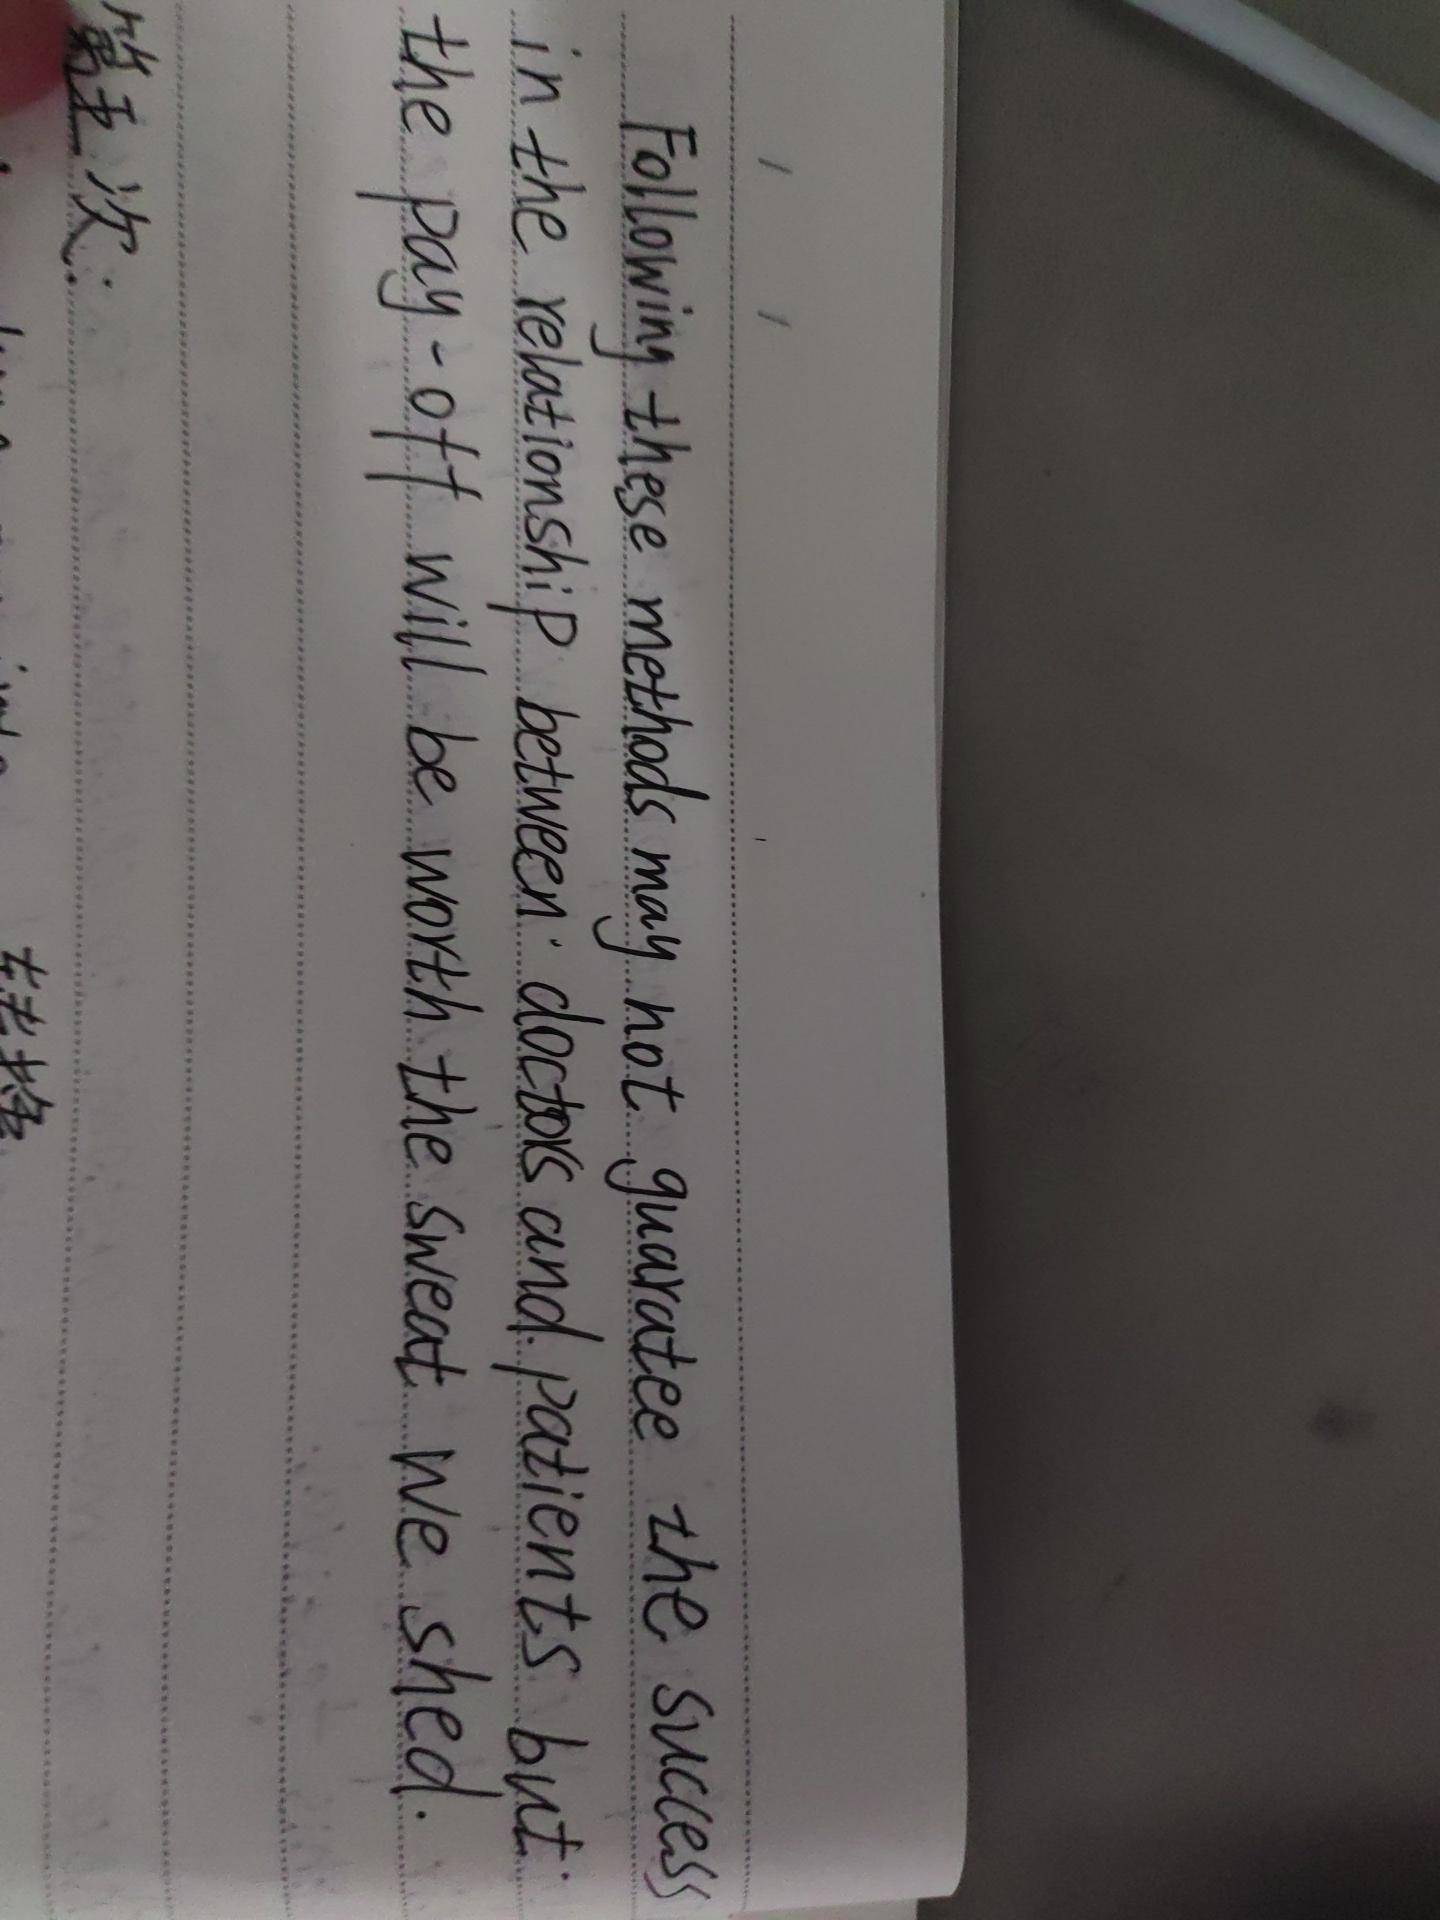 Following these methods may not guaratee the success
in the relationship between doctors and patients but
the pay-off will be worth the sweat we shed.
第五次: